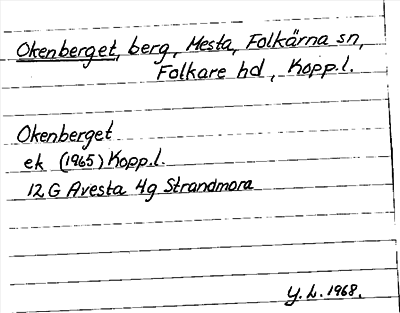 Okenberget, berg, Mesta, Folkärna sn,
Folkare hd, Kopp.l.
Okenberget
ek (1965) Kopp.l.
12 G Avesta 4g Strandmora
Y. L. 1968.